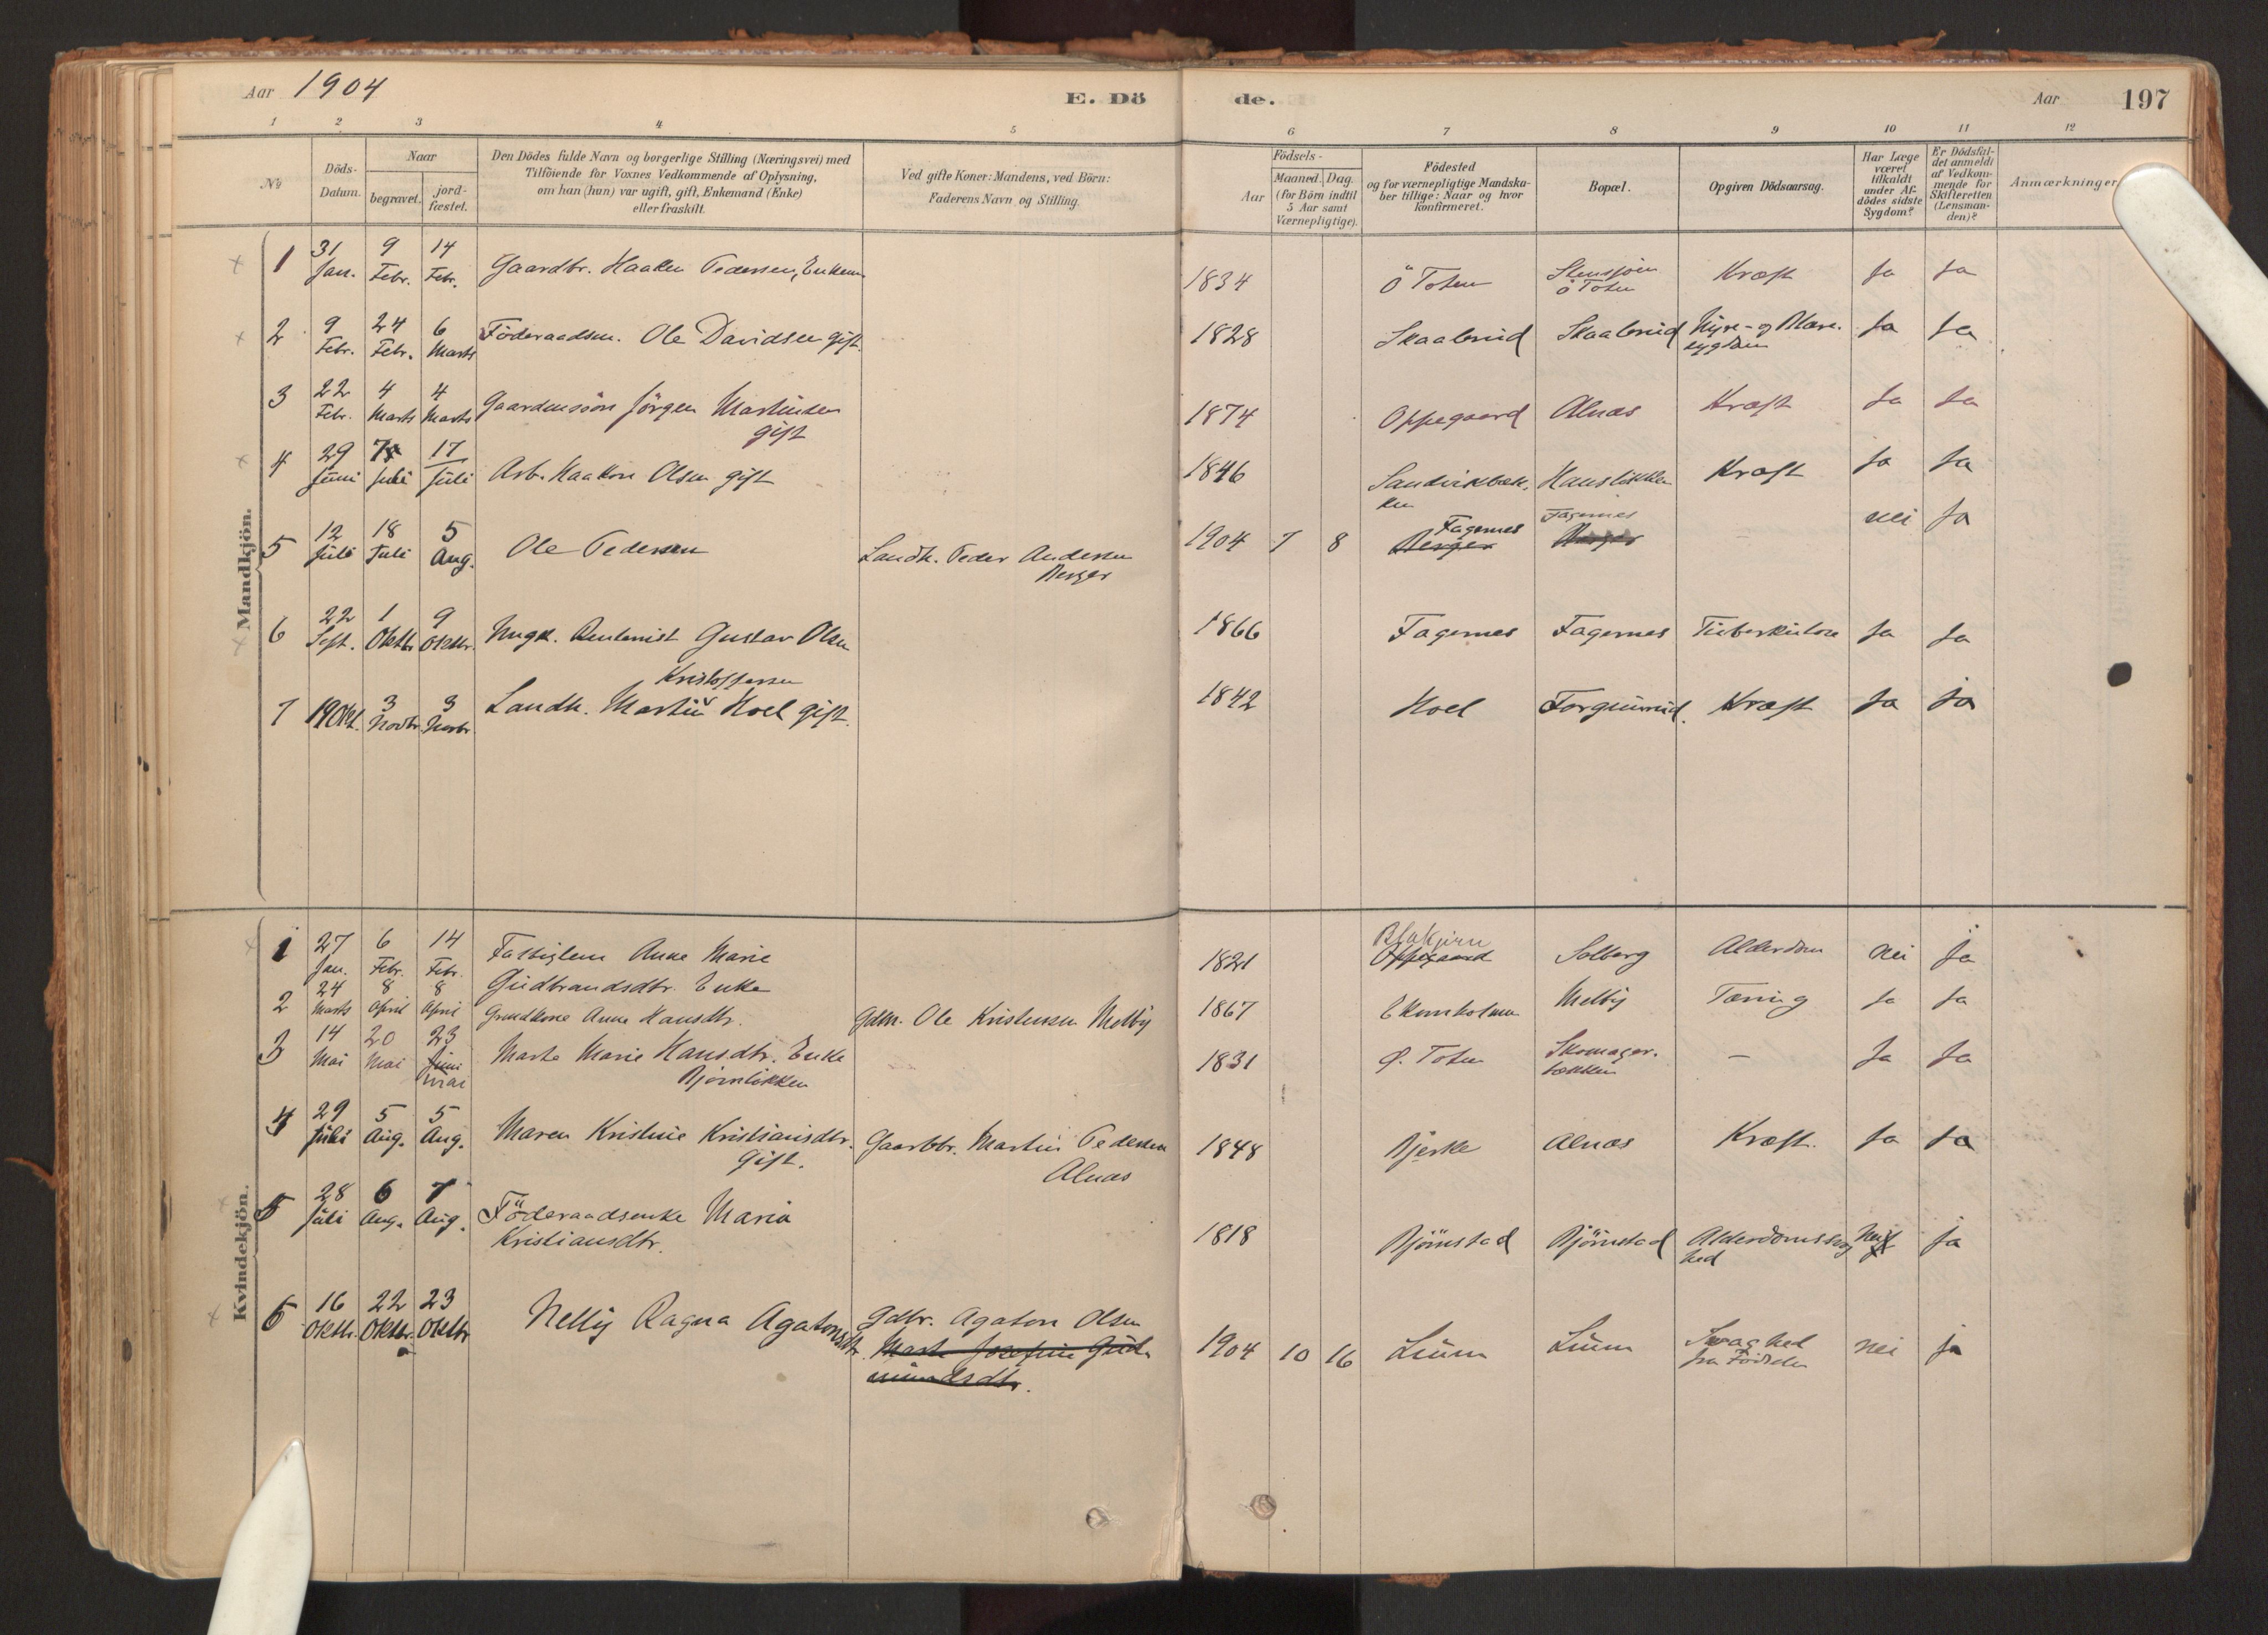 Aar 1904 E. Dö de. Aar 197
1 2 3 4 5 6 7 8 9 10 11 12
No
Döds-
Datum.
Naar
begravet.
jord-
fæstet.
Den Dödes fulde Navn og borgerlige Stilling (Næringsvei) med
Tilföiende for Voxnes Vedkommende af Oplysning,
om han (hun) var ugift, gift, Enkemand (Enke)
eller fraskilt.
Ved gifte Koner: Mandens, ved Börn:
Faderens Navn og Stilling.
Födsels-
Aar
Maaned. Dag.
(for Börn indtil
5 Aar samt
Værnepligtige).
Födested
og for værnepligtige Mandska-
ber tillige: Naar og hvor
konfirmeret.
Bopæl.
Opgiven Dödsaarsag.
Har Læge
været
tilkaldt
under Af-
dödes sidste
Sygdom?
Er Dödsfal-
det anmeldt
af Vedkom-
mende for
Skifteretten
(Lensman-
den)?
Anmærkninger
Mandkjön.
1 31 Jan. 9 Febr. 14 Febr. Gaardbr. Haaken Pedersen, Enkem 1834 Ö Toten Stensjöen Ö Toten Kræft Ja Ja
2 9 Febr. 24 Febr. 6 Marts Föderaadsm. Ole Davidsen gift. 1828 Skaalerud Skaalerud Nyre- og Blære- sygdom Ja Ja
3 22 Febr. 4 Marts 4 Marts Gaardmsön Jörgen Martinsen
gift 1874 Oppegaard Alnæs Kræft Ja Ja
4 29 Juni Juli 17 Juli Arb. Haakon Olsen gift 1846 Sandvikbæk- ken Kræft Ja Ja
5 12 Juli 18 Juli 5 Aug. Ole Pedersen Landh. Peder Andersen
Berger 1904 7 8 Fagernes Berger Fagernes Berger nei Ja
6 22 Sept. 1 Oktbr 9 Oktbr. Ungk. Rentenist Gustav Olsen
Kristoffersen 1866 Fagernes Fagernes Tuberkulose Ja Ja
7 19 Okt. 3 Novbr. 3 Novbr Landh. Martin Hoel gift. 1842 Hoel Torgunrud. Kræft Ja ja
Kvindekjön.
1 27 Jan. 6 Febr. 14 Febr. Fattiglem Anne Marie
Gudbrandsdtr. Enke 1821 Blakjern Oppegaard Solberg Alderdom nei ja
2 24 Marts 8 April 8 April Grundkone Anne Hansdtr. Gdm. Ole Kristensen Melby 1867 Ekornholmen Melby Tæring Ja Ja
3 14 Mai 20 Mai 23 Juni Mai Marte Marie Hansdtr. Enke
Björnlikken 1831 Ø. Toten Skomager- bakken — Ja Ja
4 29 Juli 5 Aug. 5 Aug. Maren Kristine Kristiansdtr.
Gift. Gaardbr. Martin Pedersen
Alnæs 1848 Bjerke Alnæs Kræft. Ja Ja
5 28 Juli 6 Aug. 7 Aug. Föderaadsenke Maria
Kristiansdtr. 1818 Björnstad Björnstad Alderdomssvag hed Nei Ja
6 16 Oktbr. 22 Oktbr. 23 Oktbr Nelly Ragna Agatonsdtr. Gdbr. Agaton Olsen
Marte Josefine Gud-
mundsdtr. 1904 10 16 Lium Lium Svaghed fra Fødselen nei ja